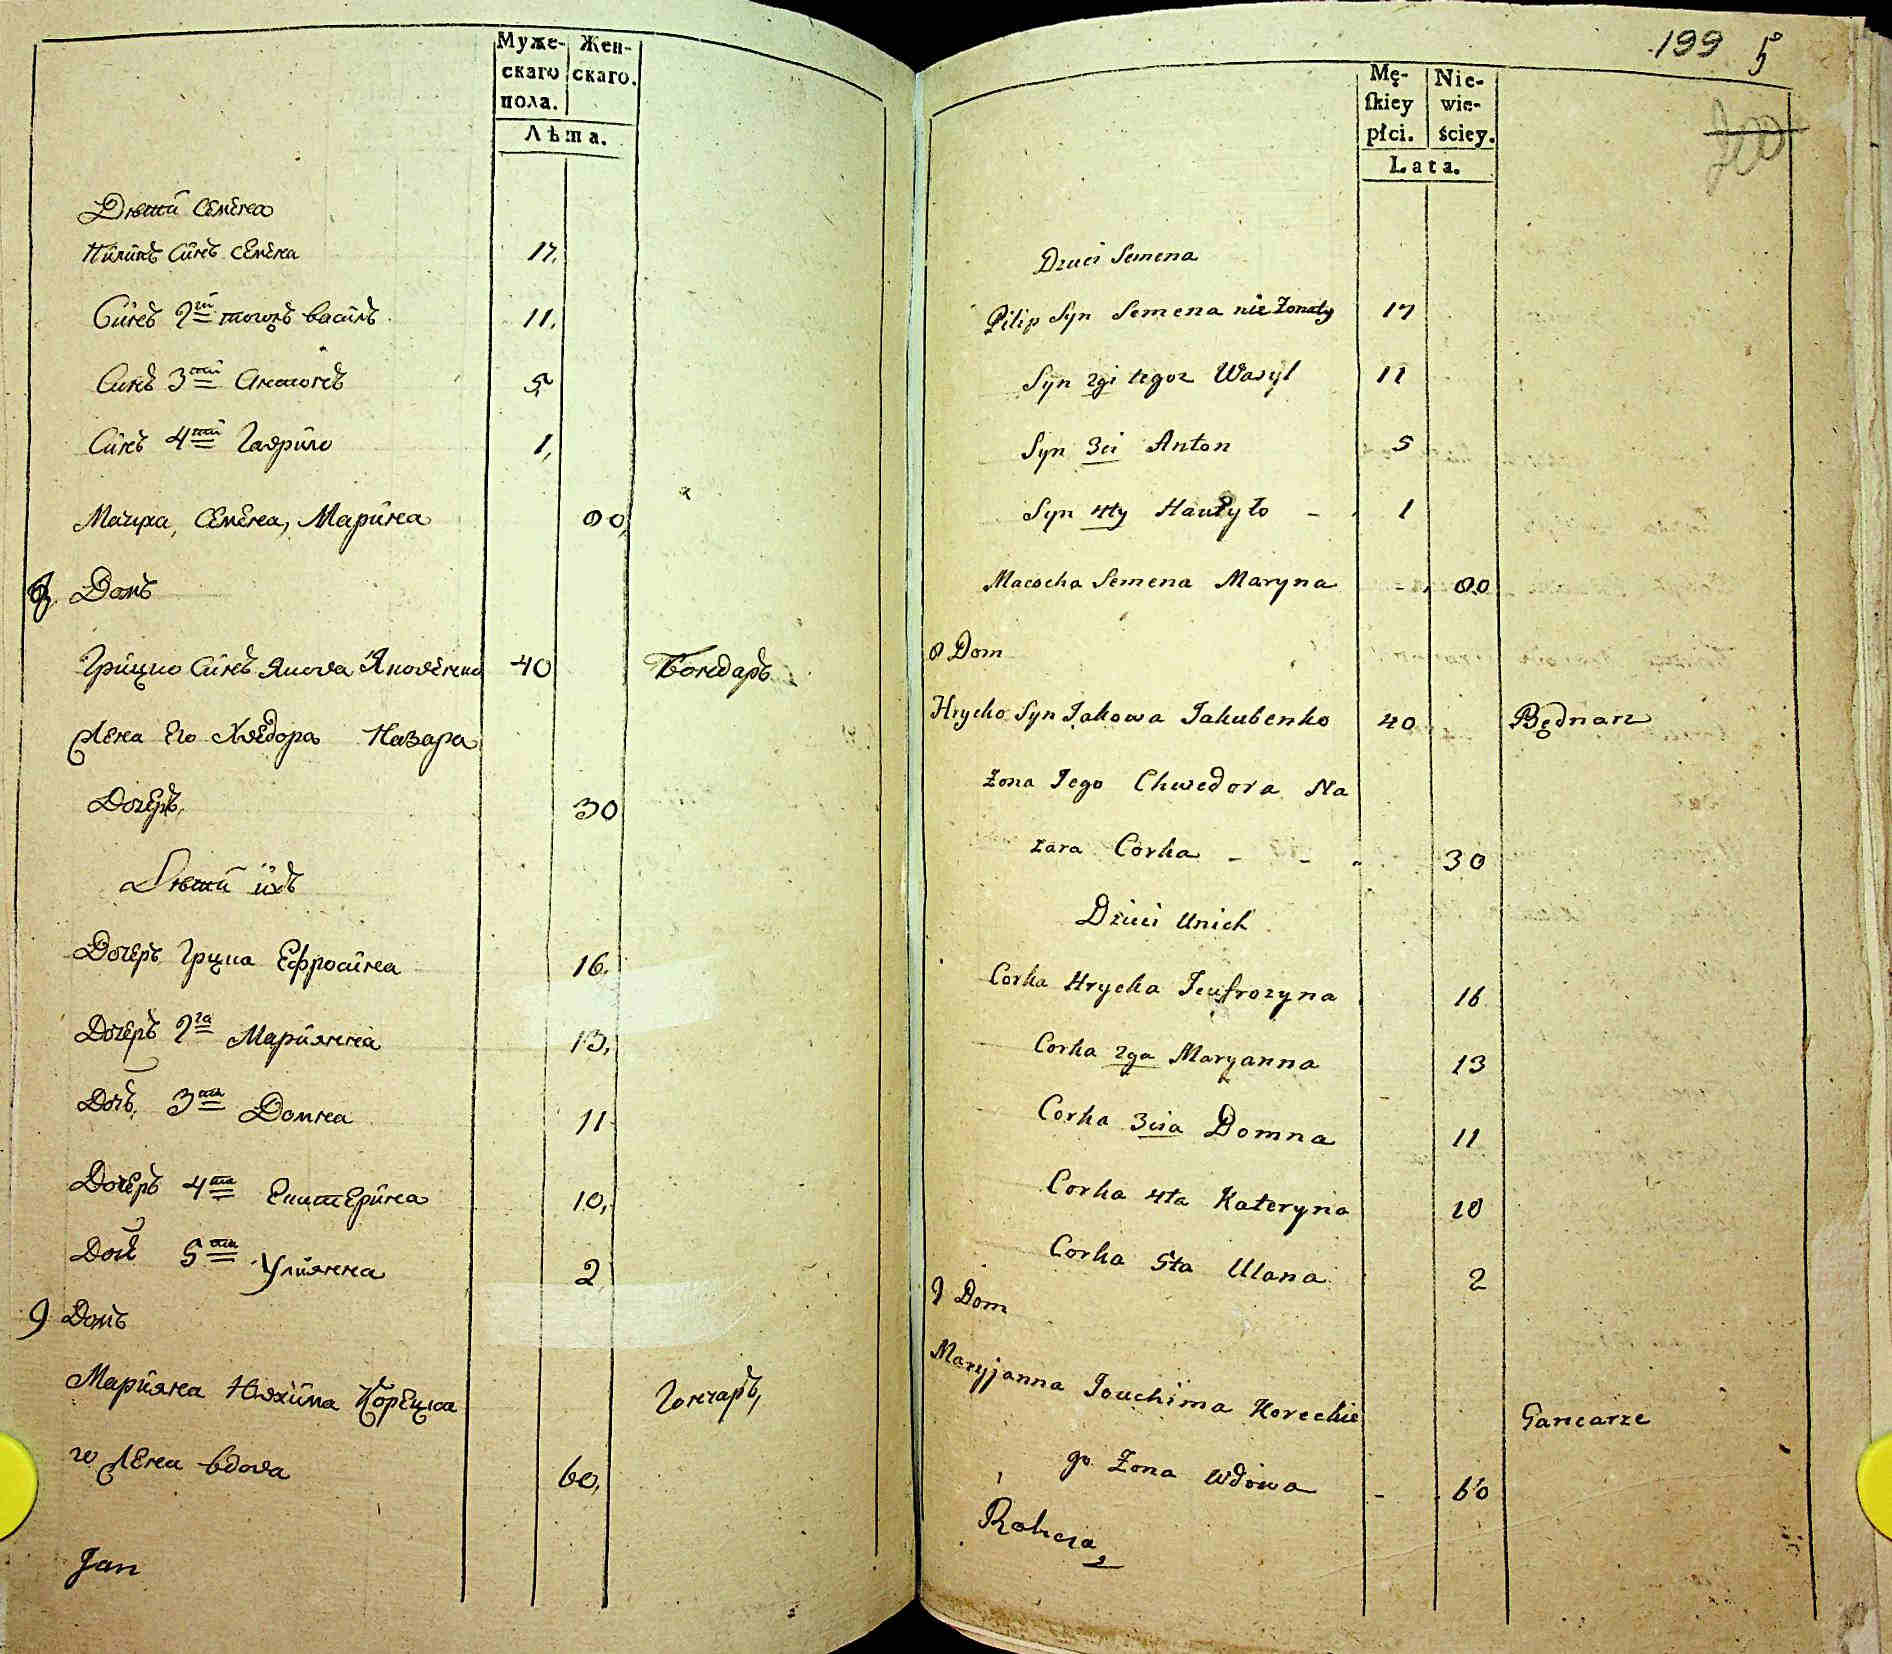 Муже-
скаго
пола.
Жен-
скаго.
Лѣта.
Дѣти Семена
Пилипъ Синъ Семена 17,
Синъ 2гй тогожъ Василь 11,
Синъ 3тий Антонъ 5,
Синъ 4тий Гаврило 1,
Мачиха, Семена, Марина 80,
8 Домъ
Грицко Синъ Якова Яковенко 40 Бондаръ
Жена Его Хведора Назара
Дочеръ, 30
Дѣти ихъ
Дочеръ Грицка Ефросина 16,
Дочеръ 2га Мариянна 13,
Дочъ, 3тя Домна 11
Дочеръ 4та Екатерина 10,
Доч 5та Улиянна 2
9 Домъ
Марияна Иохима Корецка Гончаръ,
го Жена вдова 60,
Jan
199 5
200
Mę-
ſkiey
płci.
Nie-
wie-
ściey.
Lata.
Dzieci Semena
Pilip Syn Semena nie Żonaty 17
Syn 2gi tegoz Wasyl 11
Syn 3ci Anton 5
Syn 4ty Hawryło - 1
Macocha Semena Maryna - 80
8 Dom
Hrycko Syn Jakowa Jakubenko 40 Będnarz
Żona Jego Chwedora Na
zara Corka - - 30
Dzieci Unich
Corka Hrycka Jeufrozyna 16
Corka 2ga Maryanna 13
Corka 3cia Domna 11
Corka 4ta Kateryna 10
Corka 5ta Ulana 2
9 Dom
Maryjanna Jouchima Koreckie Gancarze
go Żona wdowa - 60